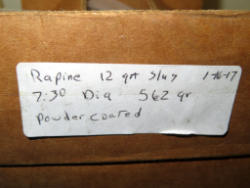 Rapine 12 gA Slug 1-16-17
7:30 Dia 562 gr
Powder coated